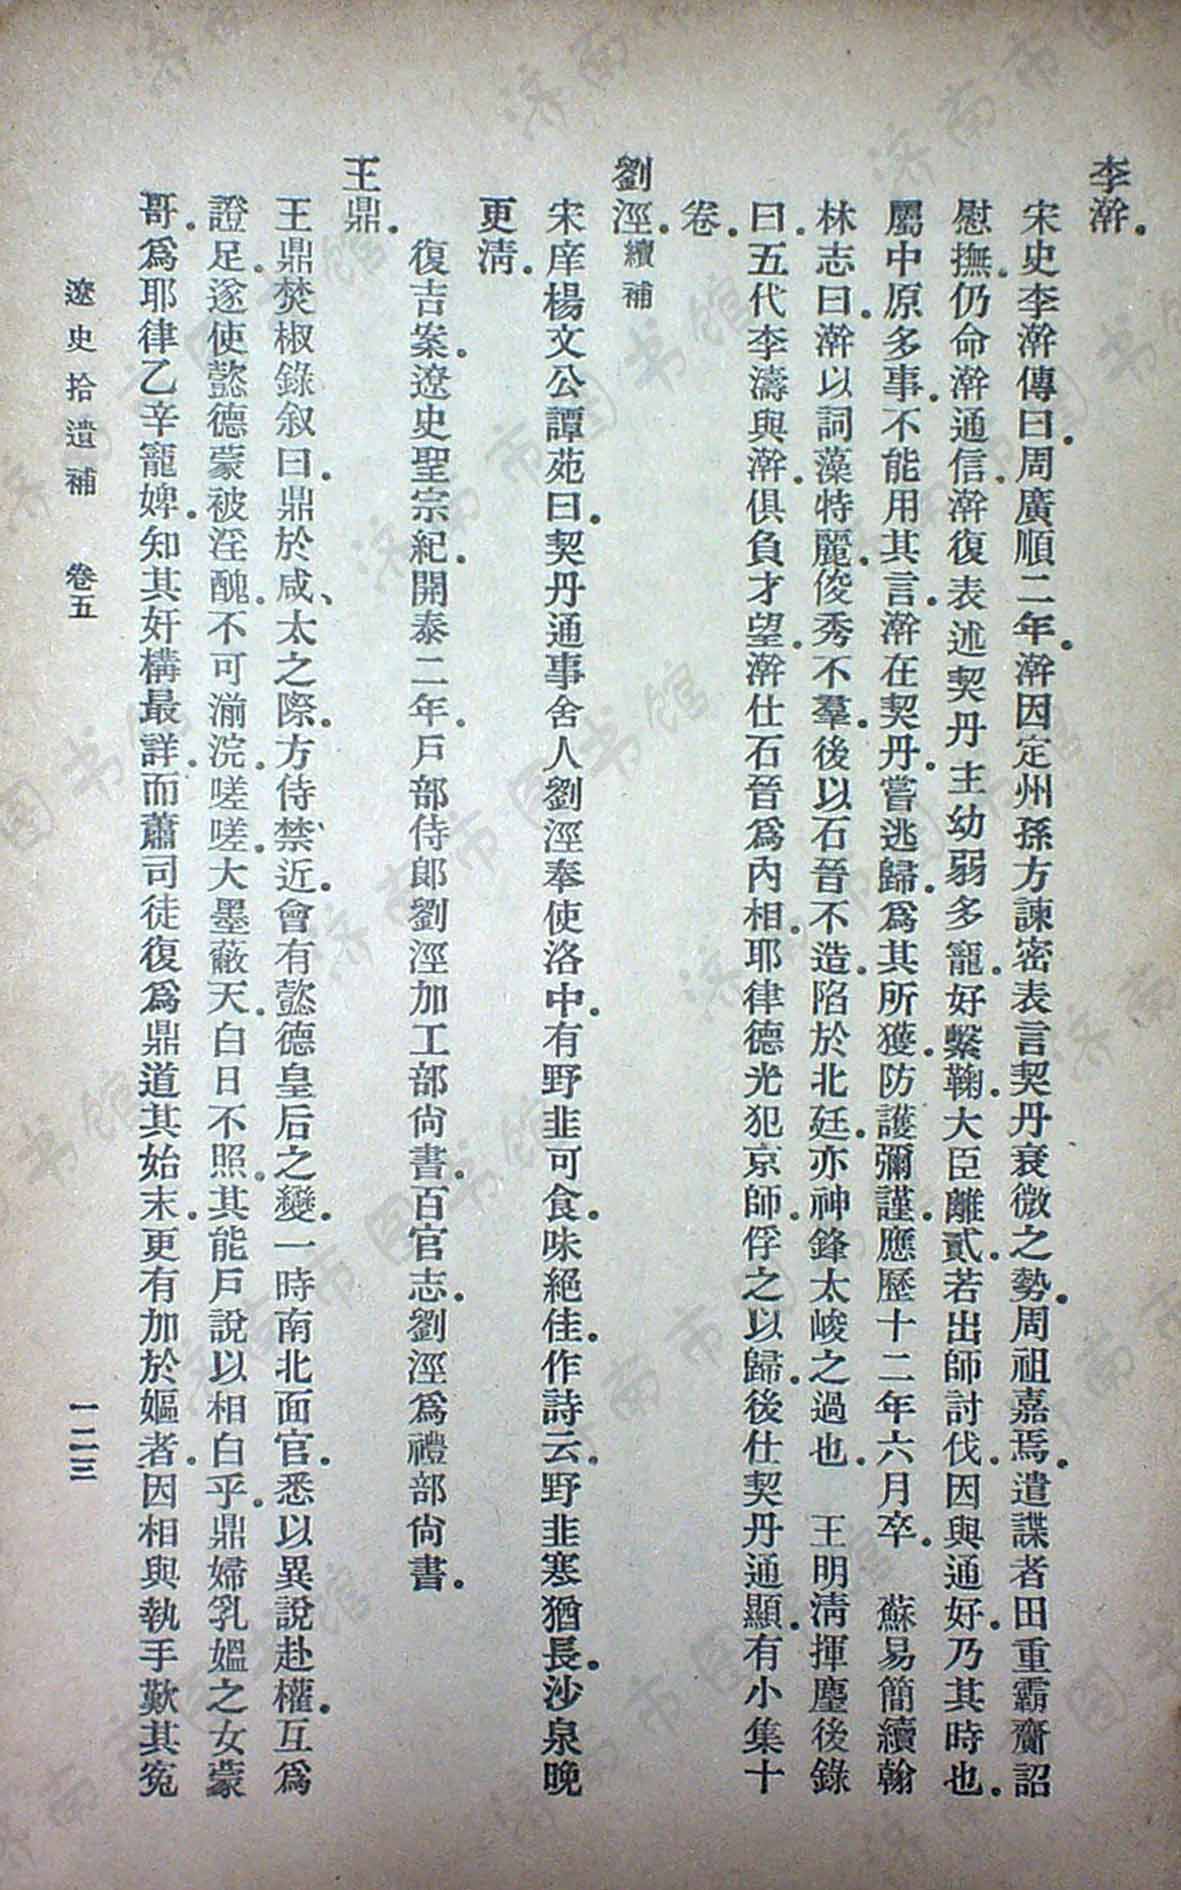 李澣。
宋史李澣傳曰。周廣順二年。澣因定州孫方諫密表言契丹衰微之勢。周祖嘉焉。遣諜者田重霸齎詔
慰撫。仍命澣通信。澣復表述契丹主幼弱多寵。好繫鞠。大臣離貳。若出師討伐。因與通好。乃其時也。
屬中原多事。不能用其言。澣在契丹。嘗逃歸。爲其所獲。防護彌謹。應歷十二年六月卒。 蘇易簡續翰
林志曰。澣以詞藻特麗。俊秀不羣。後以石晉不造。陷於北廷。亦神鋒太峻之過也。 王明淸揮麈後錄
曰。五代李濤與澣。俱負才望。澣仕石晉爲內相。耶律德光犯京師。俘之以歸。後仕契丹通顯。有小集十
卷。
劉涇。續補
宋庠楊文公譚苑曰。契丹通事舍人劉涇奉使洛中。有野韭可食。味絕佳。作詩云。野韭寒猶長。沙泉晚
更淸。
復吉案。遼史聖宗紀。開泰二年。戶部侍郎劉涇加工部尙書。百官志。劉涇爲禮部尙書。
王鼎。
王鼎焚椒錄叙曰。鼎於咸、太之際。方侍禁、近。會有懿德皇后之變。一時南北面官。悉以異說赴權。互爲
證足。遂使懿德蒙被淫醜。不可湔浣。嗟嗟。大墨蔽天。白日不照。其能戶說以相白乎。鼎婦乳媼之女蒙
哥。爲耶律乙辛寵婢。知其奸構最詳。而蕭司徒復爲鼎道其始末。更有加於嫗者。因相與執手歎其冤
遼史拾遺補 卷五
一二三